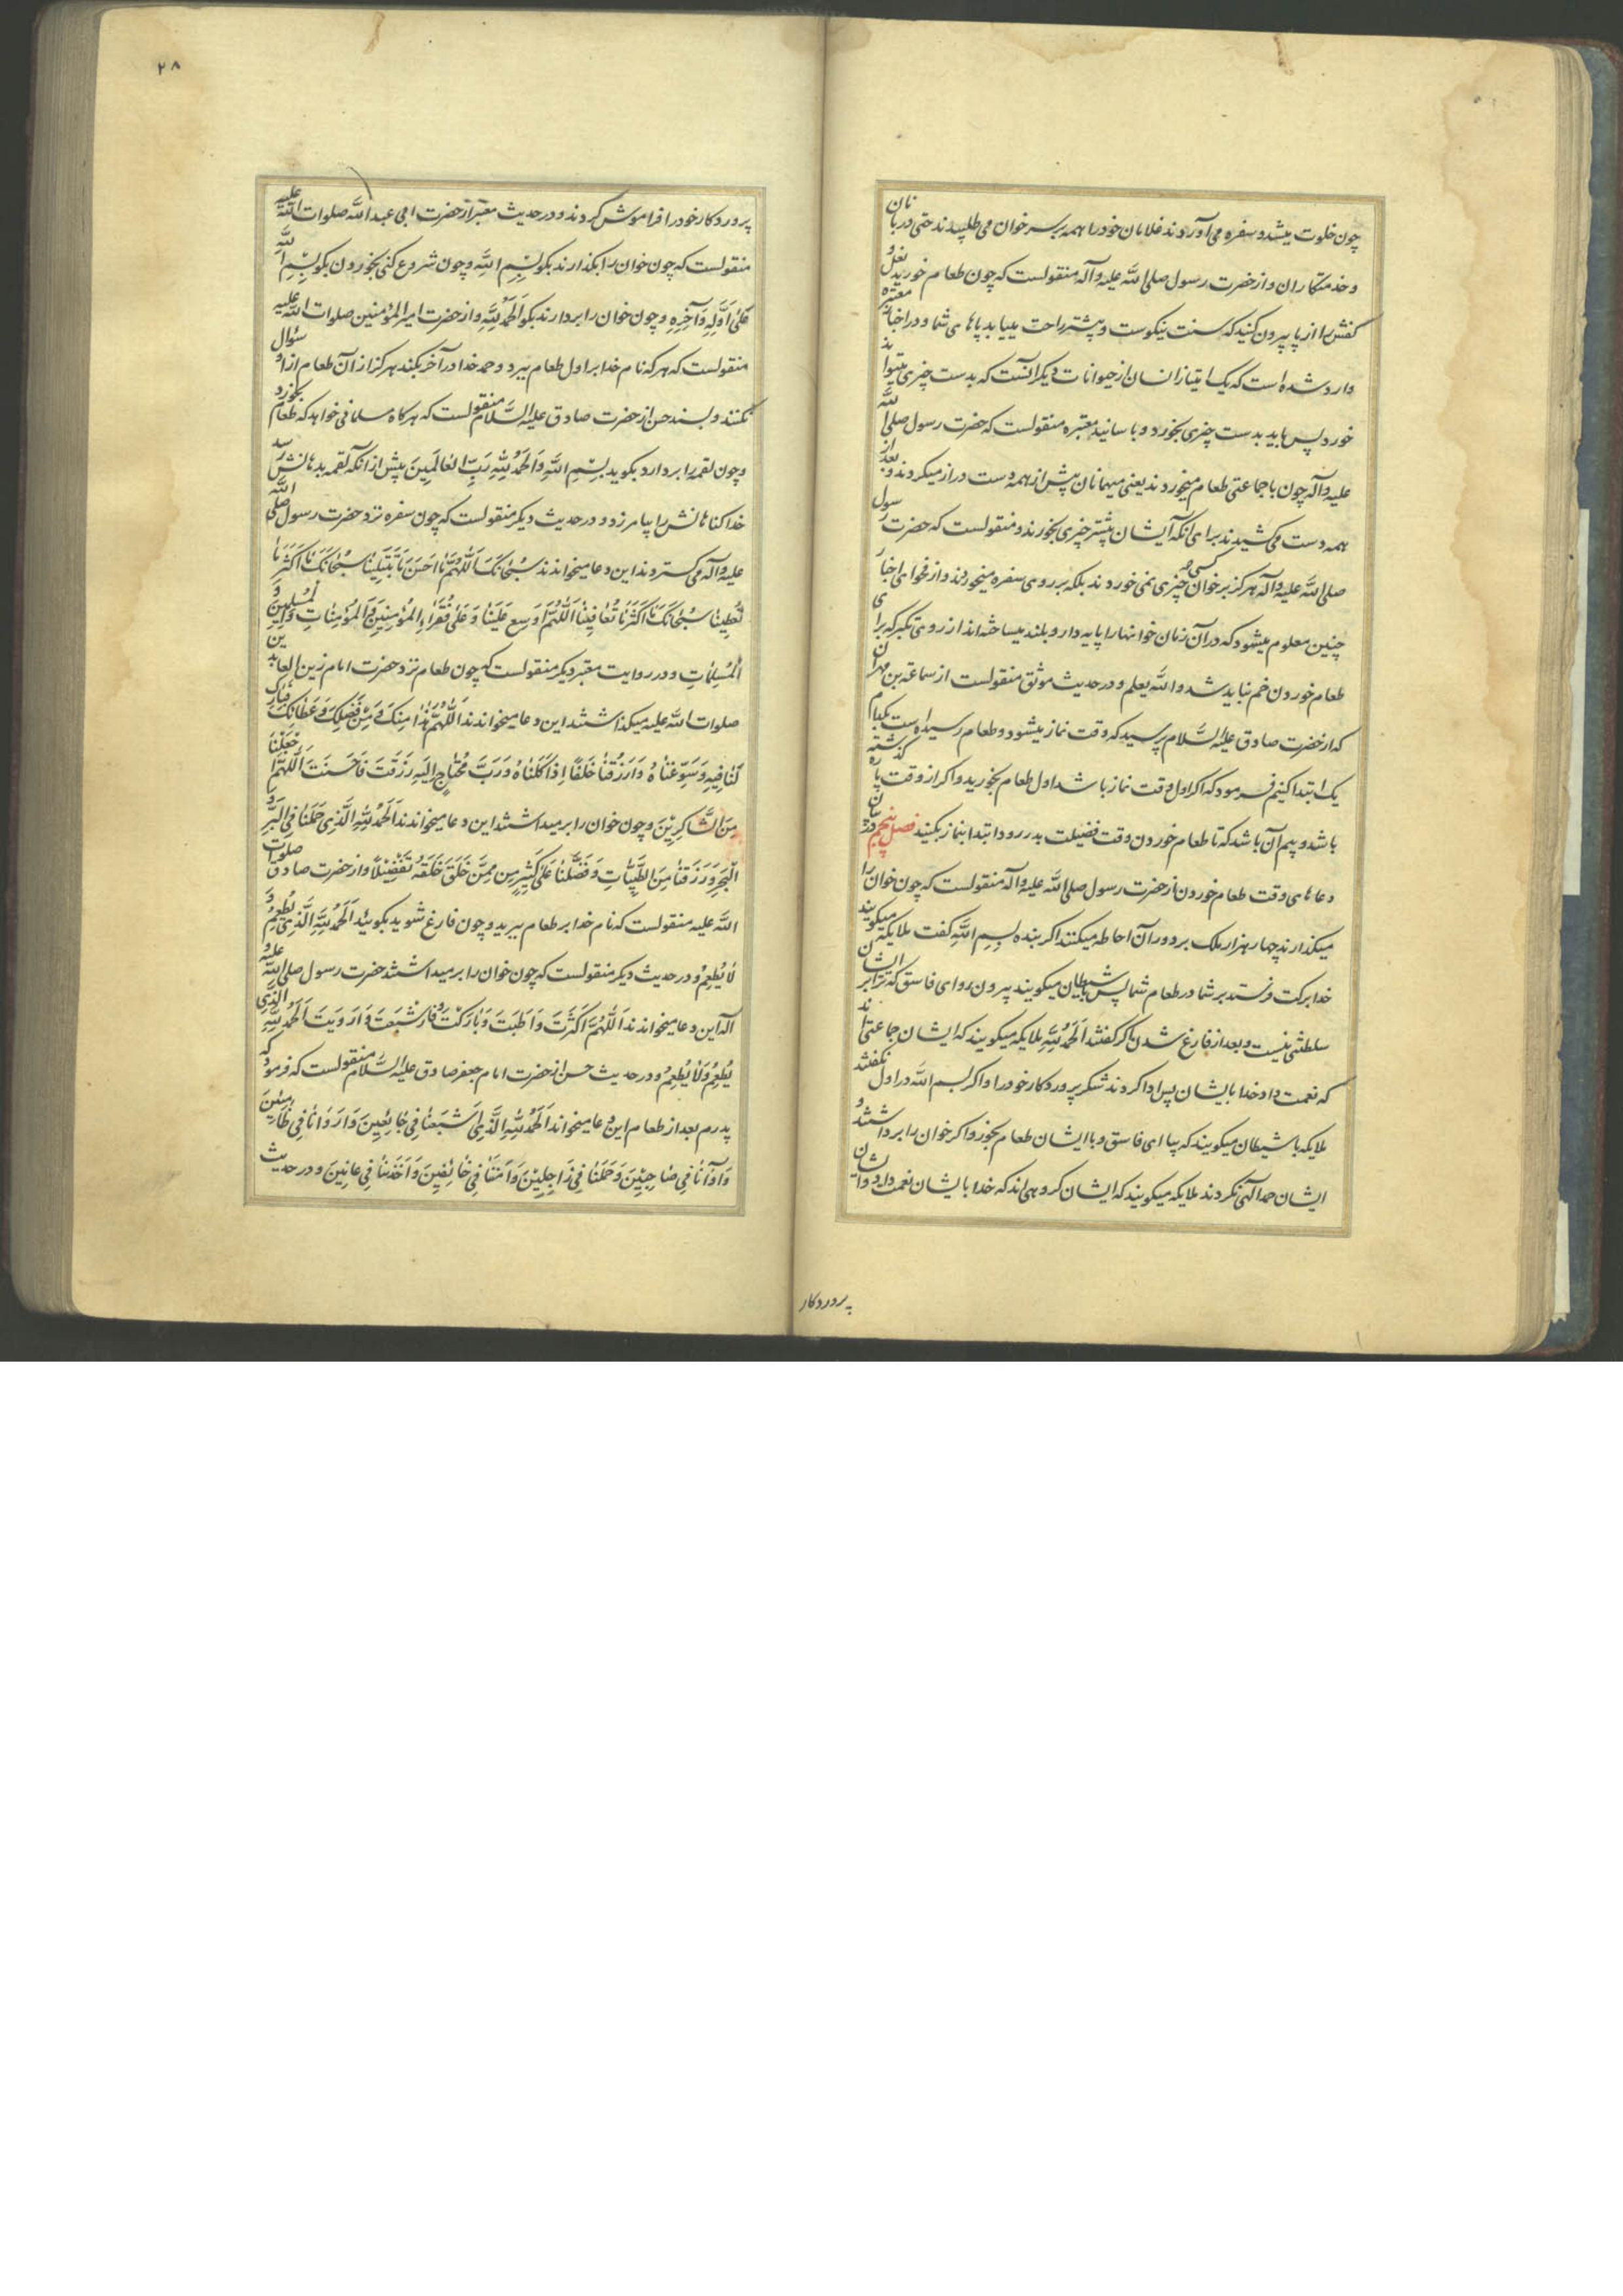 چون خلوت میشد و سفره می‌آوردند غلامان خود را همه بر سر خوان می‌طلبیدند حتی دربانان
و خدمتکاران و از حضرت رسول صلی الله علیه و آله منقولست که چون طعام خورید نعل و
کفش را از پا بیرون کنید که سنت نیکوست و بیشتر راحت مییابد پاهای شما و در اخبار معتبره
وارد شده است که یک امتیاز انسان از حیوانات دیگر آنست که بدست چیزی میتواند
خورد پس باید بدست چیزی بخورد و باسانید معتبره منقولست که حضرت رسول صلی الله
علیه و آله چون با جماعتی طعام میخوردند یعنی میهمانان پیش از همه دست دراز میکردند و بعد از
همه دست می‌کشیدند برای آنکه ایشان بیشتر چیزی بخورند و منقولست که حضرت رسول
صلی الله علیه و آله هرگز بر خوان کسی چیزی نمی خوردند بلکه بر روی سفره میخوردند و از فحوای اخبار
چنین معلوم میشود که در آن زمان خوانها را پایه دار و بلند میساخته‌اند از روی تکبر که برای
طعام خوردن خم نباید شد و الله یعلم و در حدیث موثق منقولست از سماعة بن مهران
که از حضرت صادق علیه السلام پرسید که وقت نماز میشود و طعام رسیده است بکدام
یک ابتدا کنیم فرمود که اگر اول وقت نماز باشد اول طعام بخورید و اگر از وقت پاره گذشته
باشد و بیم آن باشد که تا طعام خوردن وقت فضیلت بدر رود ابتدا بنماز بکنید فصل پنجم در بیان
دعاهای وقت طعام خوردن از حضرت رسول صلی الله علیه و آله منقولست که چون خوان را
میکذارند چهار هزار ملک بر دور آن احاطه میکنند اگر بنده بسم الله گفت ملایکه میگویند
خدا برکت فرستد بر شما در طعام شما پس بشیطان میگویند بیرون رو ای فاسق که ترا بر ایشان
سلطنتی نیست و بعد از فارغ شدن اگر گفتند الحمد لله ملایکه میگویند که ایشان جماعتی‌اند
که نعمت داد خدا بایشان پس ادا کردند شکر پروردکار خود را و اگر بسم الله در اول نگفتند
ملایکه با شیطان میگویند که بیا ای فاسق و با ایشان طعام بخور و اگر خوان را برداشتند و
ایشان حمد الهی نکردند ملایکه میگویند که ایشان گروهی‌اند که خدا بایشان نعمت داد و ایشان
پروردکار
۲۸
پروردکار خود را فراموش کردند و در حدیث معتبر از حضرت ابی عبد الله صلوات الله علیه
منقولست که چون خوان را بکذارند بکو بِسْمِ اللهِ و چون شروع کنی بخوردن بکو بِسْمِ اللهِ
عَلَی اَوَّلِهِ وَآخِرِهِ و چون خوان را بردارند بکو اَلْحَمْدُ لِلهِ و از حضرت امیر المؤمنین صلوات الله علیه
منقولست که هر که نام خدا بر اول طعام ببرد و حمد خدا در آخر بکند هرکز از آن طعام از او سؤال
نکنند و بسند حسن از حضرت صادق علیه السَّلام منقولست که هرکاه مسلمانی خواهد که طعام بخورد
و چون لقمه را بردارد بکوید بِسْمِ اللهِ وَالْحَمْدُ لِلهِ رَبِّ الْعالَمینَ پیش از آنکه لقمه بدهانش رسد
خدا کناهانش را بیامرزد و در حدیث دیکر منقولست که چون سفره نزد حضرت رسول صلی الله
علیه و آله می کستردند این دعا میخواندند سُبْحانَکَ اَللّهُمَّ ما اَحْسَنَ ما تَبْتَلینا سُبْحانَکَ ما اَکْثَرَ ما
تُعْطینا سُبْحانَکَ ما اَکْثَرَ ما تُعافینا اَللّهُمَّ اَوْسِعْ عَلَیْنا وَ عَلی فُقَراءِ الْمُؤْمِنینَ وَ الْمُؤْمِناتِ وَ الْمُسْلِمینَ وَ
الْمُسْلِماتِ و در روایت معتبر دیکر منقولست که چون طعام نزد حضرت امام زین العابدین
صلوات الله علیه میکذاشتند این دعا میخواندند اَللّهُمَّ هذا مِنْکَ وَ مِنْ فَضْلِکَ وَ عَطائِکَ فَبارِکْ
لَنا فیهِ وَ سَوِّغْناهُ وَ ارْزُقْنا خَلَفًا اِذا اَکَلْناهُ وَ رَبَّ مُحْتاجٍ اِلَیْهِ رَزَقْتَ فَاَحْسَنْتَ اَللّهُمَّ اجْعَلْنا
مِنَ الشّاکِرینَ و چون خوان را برمیداشتند این دعا میخواندند اَلْحَمْدُ لِلهِ الَّذی حَمَلَنا فِی الْبَرِّ وَ
الْبَحْرِ وَ رَزَقَنا مِنَ الطَّیِّباتِ وَ فَضَّلَنا عَلی کَثیرٍ مِمَّنْ خَلَقَ خَلْقَهُ تَفْضیلاً و از حضرت صادق صلوات
الله علیه منقولست که نام خدا بر طعام ببرید و چون فارغ شوید بکوئید اَلْحَمْدُ لِلهِ الَّذی یُطْعِمُ وَ
لا یُطْعَمُ و در حدیث دیکر منقولست که چون خوان را برمیداشتند حضرت رسول صلی الله علیه و
آله این دعا میخواندند اَللّهُمَّ اَکْثَرْتَ وَ اَطَبْتَ وَ بارَکْتَ وَ فَاَشْبَعْتَ وَ اَرْوَیْتَ اَلْحَمْدُ لِلهِ الَّذی
یُطْعِمُ وَلا یُطْعَمُ و در حدیث حسن از حضرت امام جعفر صادق علیه السَّلام منقولست که فرمود که
پدرم بعد از طعام این دعا میخواند اَلْحَمْدُ لِلهِ الَّذی اَشْبَعَنا فی جائِعینَ وَ اَرْوانا فی ظامِئینَ
وَ آوانا فی ضاحینَ وَ حَمَلَنا فی راجِلینَ وَ آمَنَنا فی خائِفینَ وَ اَخْدَمَنا فی عانینَ و در حدیث